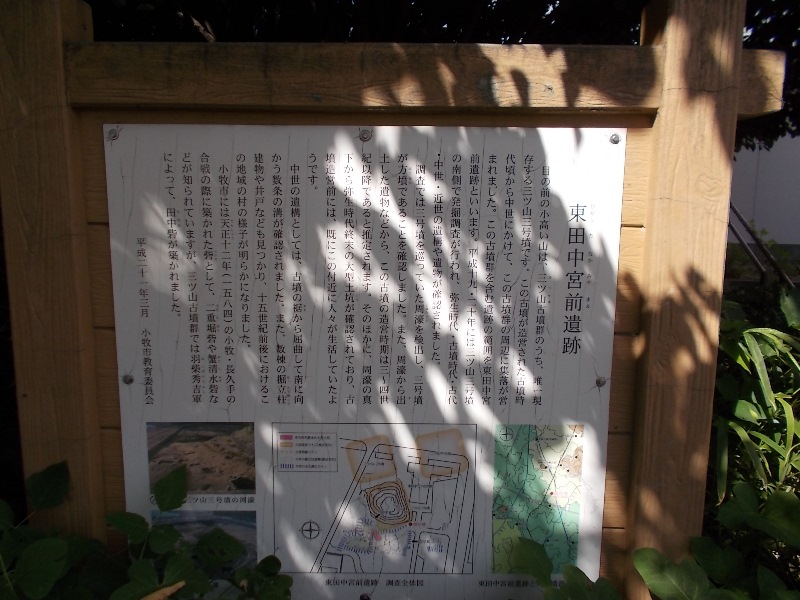 東田中宮前遺跡
目の前の小高い山は、三ツ山古墳群のうち、唯一現
存する三ツ山三号墳です。この古墳が造営された古墳時
代頃から中世にかけて、この古墳群の周辺に集落が営
まれました。この古墳群を含む遺跡の範囲を東田中宮
前遺跡といいます。平成十九・二十年には三ツ山三号墳
の南側で発掘調査が行われ、弥生時代・古墳時代・古代
・中世・近世の遺構や遺物が確認されました。
調査では三号墳を巡っていた周濠を検出し、三号墳
が方墳であることを確認しました。また、周濠から出
土した遺物などから、この古墳の造営時期は三〜四世
紀以降であると推定されます。そのほかに、周濠の真
下から弥生時代終末の大型土坑が確認されており、古
墳造営前には、既にこの付近に人々が生活していたよ
うです。
中世の遺構としては、古墳の裾から屈曲して南に向
かう数条の溝が確認されました。また、数棟の掘立柱
建物や井戸なども見つかり、十五世紀前後におけるこ
の地域の村の様子が明らかになりました。
小牧市には天正十二年(一五八四)の小牧・長久手の
合戦の際に築かれた砦として、二重堀砦や蟹清水砦な
どが知られていますが、三ツ山古墳群では羽柴秀吉軍
によって、田中砦が築かれました。
平成二十一年三月 小牧市教育委員会
ツ山三号墳の周濠
東田中宮前遺跡 調査全体図
東田中宮前遺跡